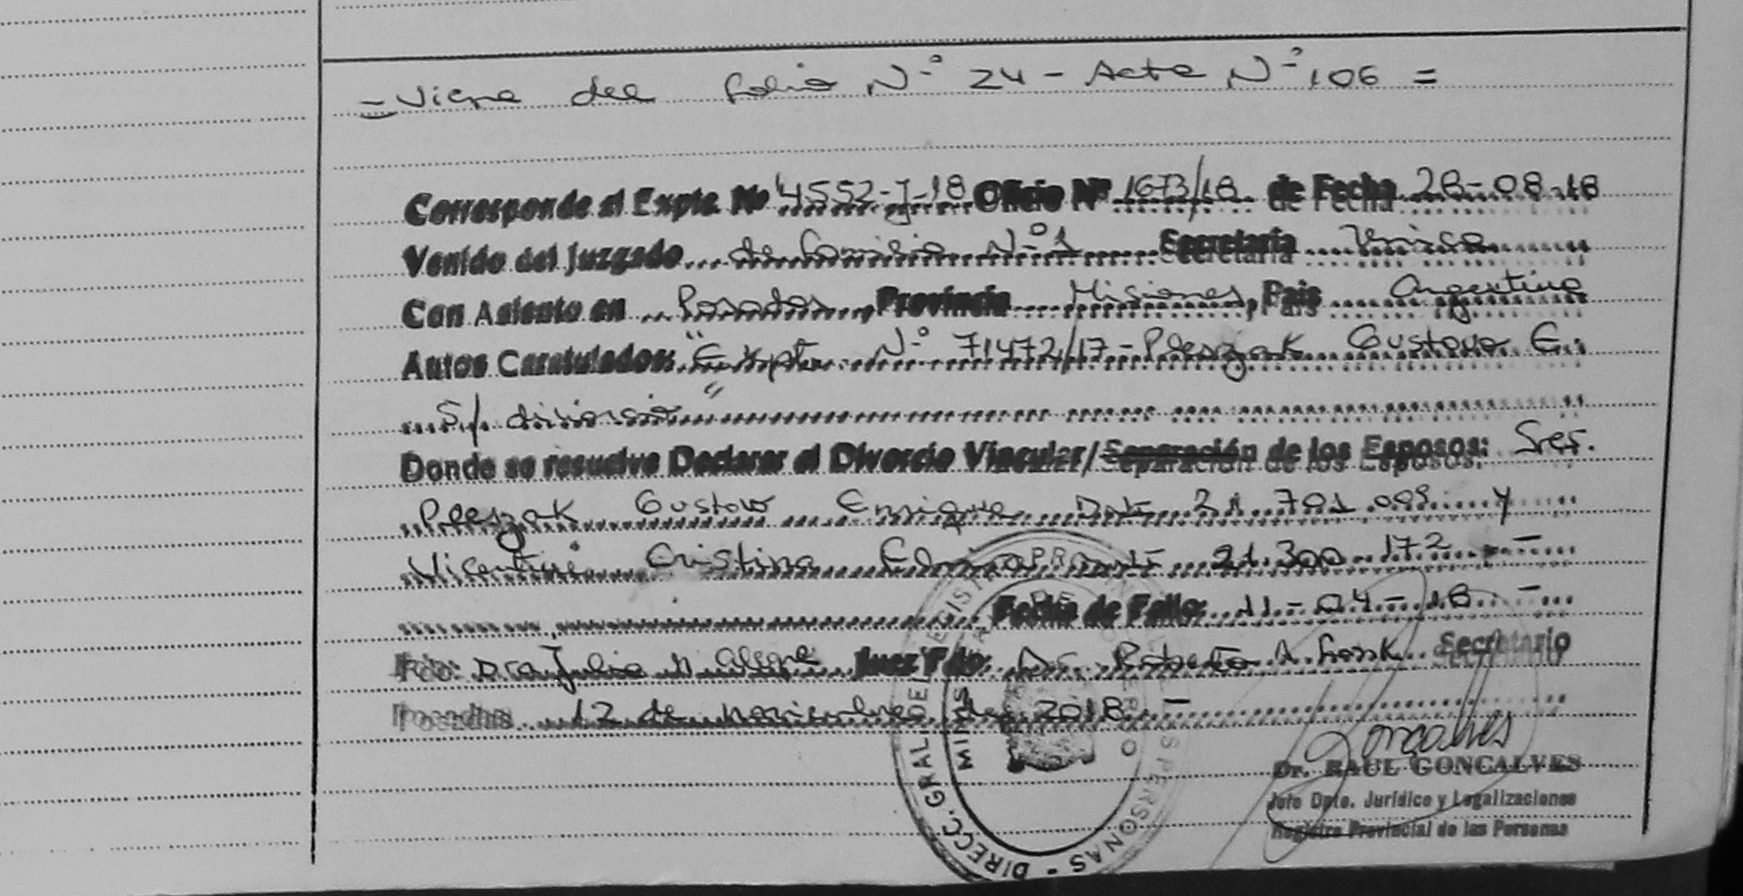 = Viene del folio N° 24 - Acta N° 106 =
Corresponde al Expte. No 4552-J-18 Oficio Nº 1673/18 de Fecha 28-08-18
Venido del Juzgado de Familia N° 1 Secretaría Unica
Con Asiento en Posadas, Provincia Misiones, Pais Argentina
Autos Caratulados: "Expte. N° 71472/17 - Pleszak Gustavo E.
S/ divorcio"
Donde se resuelve Declarar el Divorcio Vincular/Separación de los Esposos: Sres.
Pleszak Gustavo Enrique DNI 21.701.099 y
Vicentini Cristina DNI 21.300.172 -
Fecha de Fallo: 11-04-18 -
Fdo: Dra Julia Alegre Juez Fdo: Dr. Roberto A. Secretario
Posadas 12 de noviembre de 2018 -
DIRECC. GRAL DEL REGISTRO PROV DE LAS PERSONAS
MINIST DE GOBIERNO
Goncalves
Dr. RAUL GONCALVES
Jefe Dpto. Jurídico y Legalizaciones
Registro Provincial de las Personas